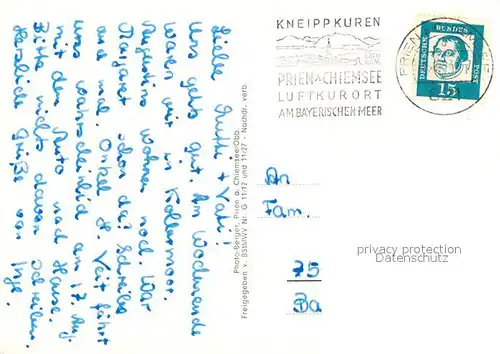 Liebe Mutti + Vati!
Uns gehts gut. Am Wochenende
waren wir in Kolbermoor.
Augustins wohnen noch. War
Margaret schon da? Schreibe
uns mal. Onkel H. Veit fährt
uns wahrscheinlich am 17. Aug.
mit dem Auto nach Hause.
Bitte nichts davon schreiben.
Herzliche Grüße von Inge.
Photo-Berger, Prien a. Chiemsee/Obb.
Freigegeben v. BStMWV Nr. G 11/12 und 11/27 - Nachdr. verb.
KNEIPPKUREN
PRIEN a. CHIEMSEE
LUFTKURORT
AM BAYERISCHEN MEER
PRIEN
DEUTSCHE BUNDESPOST
15
An
Fam.
privacy protection
Datenschutz
75
Ba